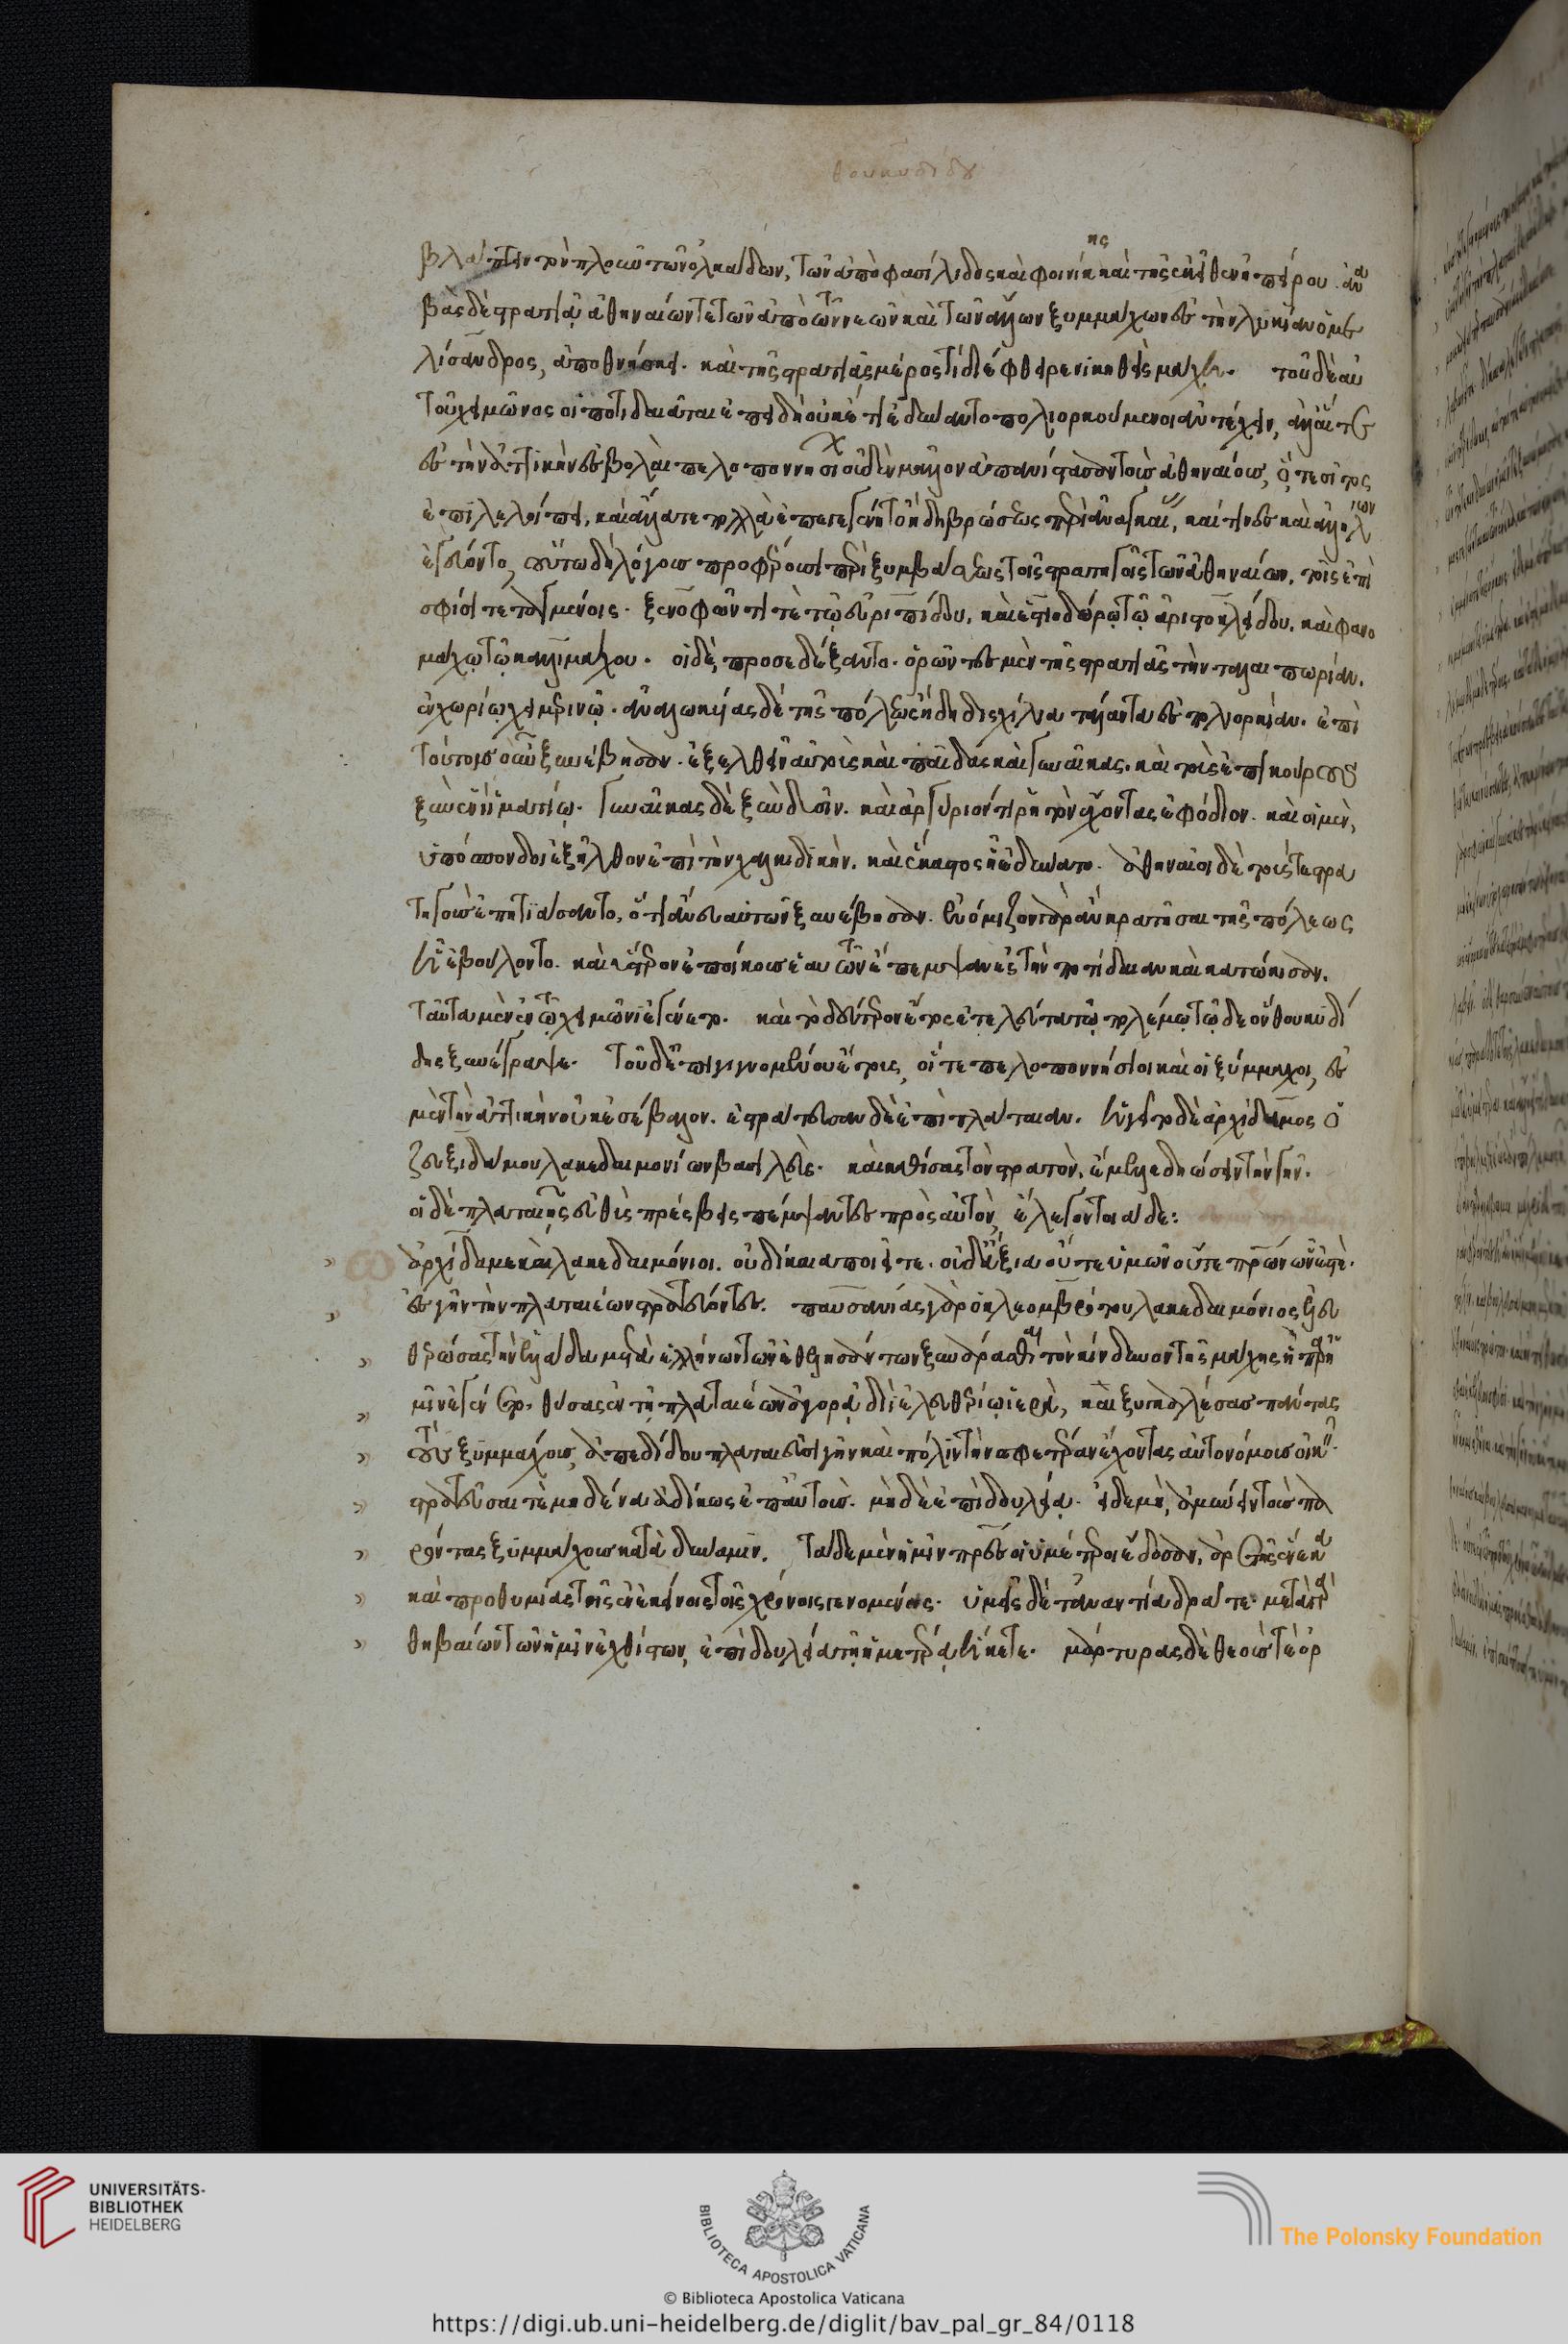 θουκυδίδου
βλάπτειν τὸν πλοῦν τῶν ὁλκάδων, τῶν ἀπὸ φασίλιδος καὶ φοινίκης καὶ τῆς ἐκεῖθεν ἠπείρου. ἀνα
βὰς δὲ στρατιᾷ ἀθηναίων τε τῶν ἀπὸ τῶν νεῶν καὶ τῶν ἄλλων ξυμμάχων ἐς τὴν λυκίαν ὁ με
λίσανδρος, ἀποθνήσκει. καὶ τῆς στρατιᾶς μέρος τὶ διέφθειρε νικηθεὶς μάχῃ. τοῦ δὲ αὐ
τοῦ χειμῶνος οἱ ποτιδαιᾶται ἐπειδὴ οὐκέτι ἐδύναντο πολιορκούμενοι ἀντέχειν, ἀλλ' αἵ τε
ἐς τὴν ἀττικὴν ἐσβολαὶ πελοποννησίων οὐδὲν μᾶλλον ἀπανίστασαν τοὺς ἀθηναίους, ὅ τε σῖτος
ἐπιλελοίπει, καὶ ἄλλα τε πολλὰ ἐπεγεγένητο ἤδη βρώσεως περὶ ἀναγκαίας, καί τινες καὶ ἀλλήλων
ἐγέγευντο, οὕτω δὴ λόγους προσφέρουσι περὶ ξυμβάσεως τοῖς στρατηγοῖς τῶν ἀθηναίων, τοῖς ἐπὶ
σφίσι τεταγμένοις. ξενοφῶντί τε τῷ εὐριπίδου, καὶ ἑστιοδώρῳ τῷ ἀριστοκλείδου, καὶ φανο
μάχῳ τῷ καλλιμάχου. οἱ δὲ, προσεδέξαντο. ὁρῶντες μὲν τῆς στρατιᾶς τὴν ταλαιπωρίαν,
ἐν χωρίῳ χειμερινῷ. ἀναλωκυίας δὲ τῆς πόλεως ἤδη δισχίλια τάλαντα ἐς τὴν πολιορκίαν. ἐπὶ
τούτοις οὖν ξυνέβησαν. ἐξελθεῖν αὐτοὺς καὶ παῖδας καὶ γυναῖκας. καὶ τοὺς ἐπικούρους
ξὺν ἑνὶ ἱματίῳ. γυναῖκας δὲ ξὺν δυοῖν. καὶ ἀργύριόν τι ῥητὸν ἔχοντας ἐφόδιον. καὶ οἱ μὲν,
ὑπόσπονδοι ἐξῆλθον ἐπὶ τὴν χαλκιδικήν. καὶ ἕκαστος ᾗ ἐδύνατο. ἀθηναῖοι δὲ τούς τε στρα
τηγοὺς ἐπῃτιάσαντο, ὅτι ἄνευ αὐτῶν ξυνέβησαν. ἐνόμιζον γὰρ ἂν κρατῆσαι τῆς πόλεως
ᾗ ἐβούλοντο. καὶ ὕστερον ἐποίκους ἑαυτῶν ἔπεμψαν ἐς τὴν ποτίδαιαν καὶ κατῴκισαν.
ταῦτα μὲν ἐν τῷ χειμῶνι ἐγένετο. καὶ τὸ δεύτερον ἔτος ἐτελεύτα τῷ πολέμῳ τῷδε ὃν θουκυδί
δης ξυνέγραψε. τοῦ δ' ἐπιγιγνομένου ἔτους, οἵ τε πελοποννήσιοι καὶ οἱ ξύμμαχοι, ἐς
μὲν τὴν ἀττικὴν οὐκ ἐσέβαλον. ἐστράτευσαν δὲ ἐπὶ πλάταιαν. ἡγεῖτο δὲ ἀρχίδαμος ὁ
ζευξιδάμου λακεδαιμονίων βασιλεύς. καὶ καθίσας τὸν στρατὸν, ἔμελλε δῃώσειν τὴν γῆν.
οἱ δὲ πλαταιῆς εὐθὺς πρέσβεις πέμψαντες πρὸς αὐτὸν, ἔλεγον τοιάδε:
ἀρχίδαμε καὶ λακεδαιμόνιοι. οὐ δίκαια ποιεῖτε. οὐδ' ἄξια οὔτε ὑμῶν οὔτε πατέρων ὧν ἐστὲ.
ἐς γῆν τὴν πλαταιέων στρατεύοντες. παυσανίας γὰρ ὁ κλεομβρότου λακεδαιμόνιος ἐλευ
θερώσας τὴν ἑλλάδα μετὰ ἑλλήνων τῶν ἐθελησάντων ξυνάρασθαι τὸν κίνδυνον τῆς μάχης ἣ παρ' ἡ
μῖν ἐγένετο, θύσας ἐν τῇ πλαταιέων ἀγορᾷ διὶ ἐλευθερίῳ ἱερὰ, καὶ ξυγκαλέσας πάντας
τοὺς ξυμμάχους, ἀπεδίδου πλαταιεῦσι γῆν καὶ πόλιν τὴν σφετέραν ἔχοντας αὐτονόμους οἰκεῖν.
στρατεῦσαί τε μηδένα ἀδίκως ἐπ' αὐτοὺς. μηδὲ ἐπὶ δουλείᾳ. εἰ δὲ μή, ἀμύνειν τοὺς πα
ρόντας ξυμμάχους κατὰ δύναμιν. τάδε μὲν ἡμῖν πατέρες οἱ ὑμέτεροι ἔδοσαν, ἀρετῆς ἕνεκα
καὶ προθυμίας τῆς ἐν ἐκείνοις τοῖς χρόνοις γενομένης. ὑμεῖς δὲ τἀναντία δρᾶτε. μετὰ γὰρ
θηβαίων τῶν ἡμῖν ἐχθίστων, ἐπὶ δουλείᾳ τῇ ἡμετέρᾳ ἥκετε. μάρτυρας δὲ θεοὺς τούς τε ὁρ
UNIVERSITÄTS-
BIBLIOTHEK
HEIDELBERG
BIBLIOTECA APOSTOLICA VATICANA
The Polonsky Foundation
© Biblioteca Apostolica Vaticana
https://digi.ub.uni-heidelberg.de/diglit/bav_pal_gr_84/0118